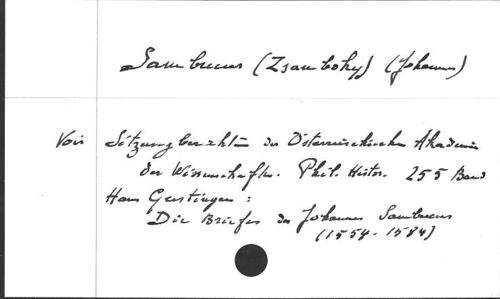 Sambucus (Zsamboky) (Johannes)
Voir Sitzungberichte der Österreichischen Akademie
der Wissenschaften. Phil. Histor. 255 Band
Hans Gerstinger:
Die Briefe des Johannes Sambucus
(1554-1584)